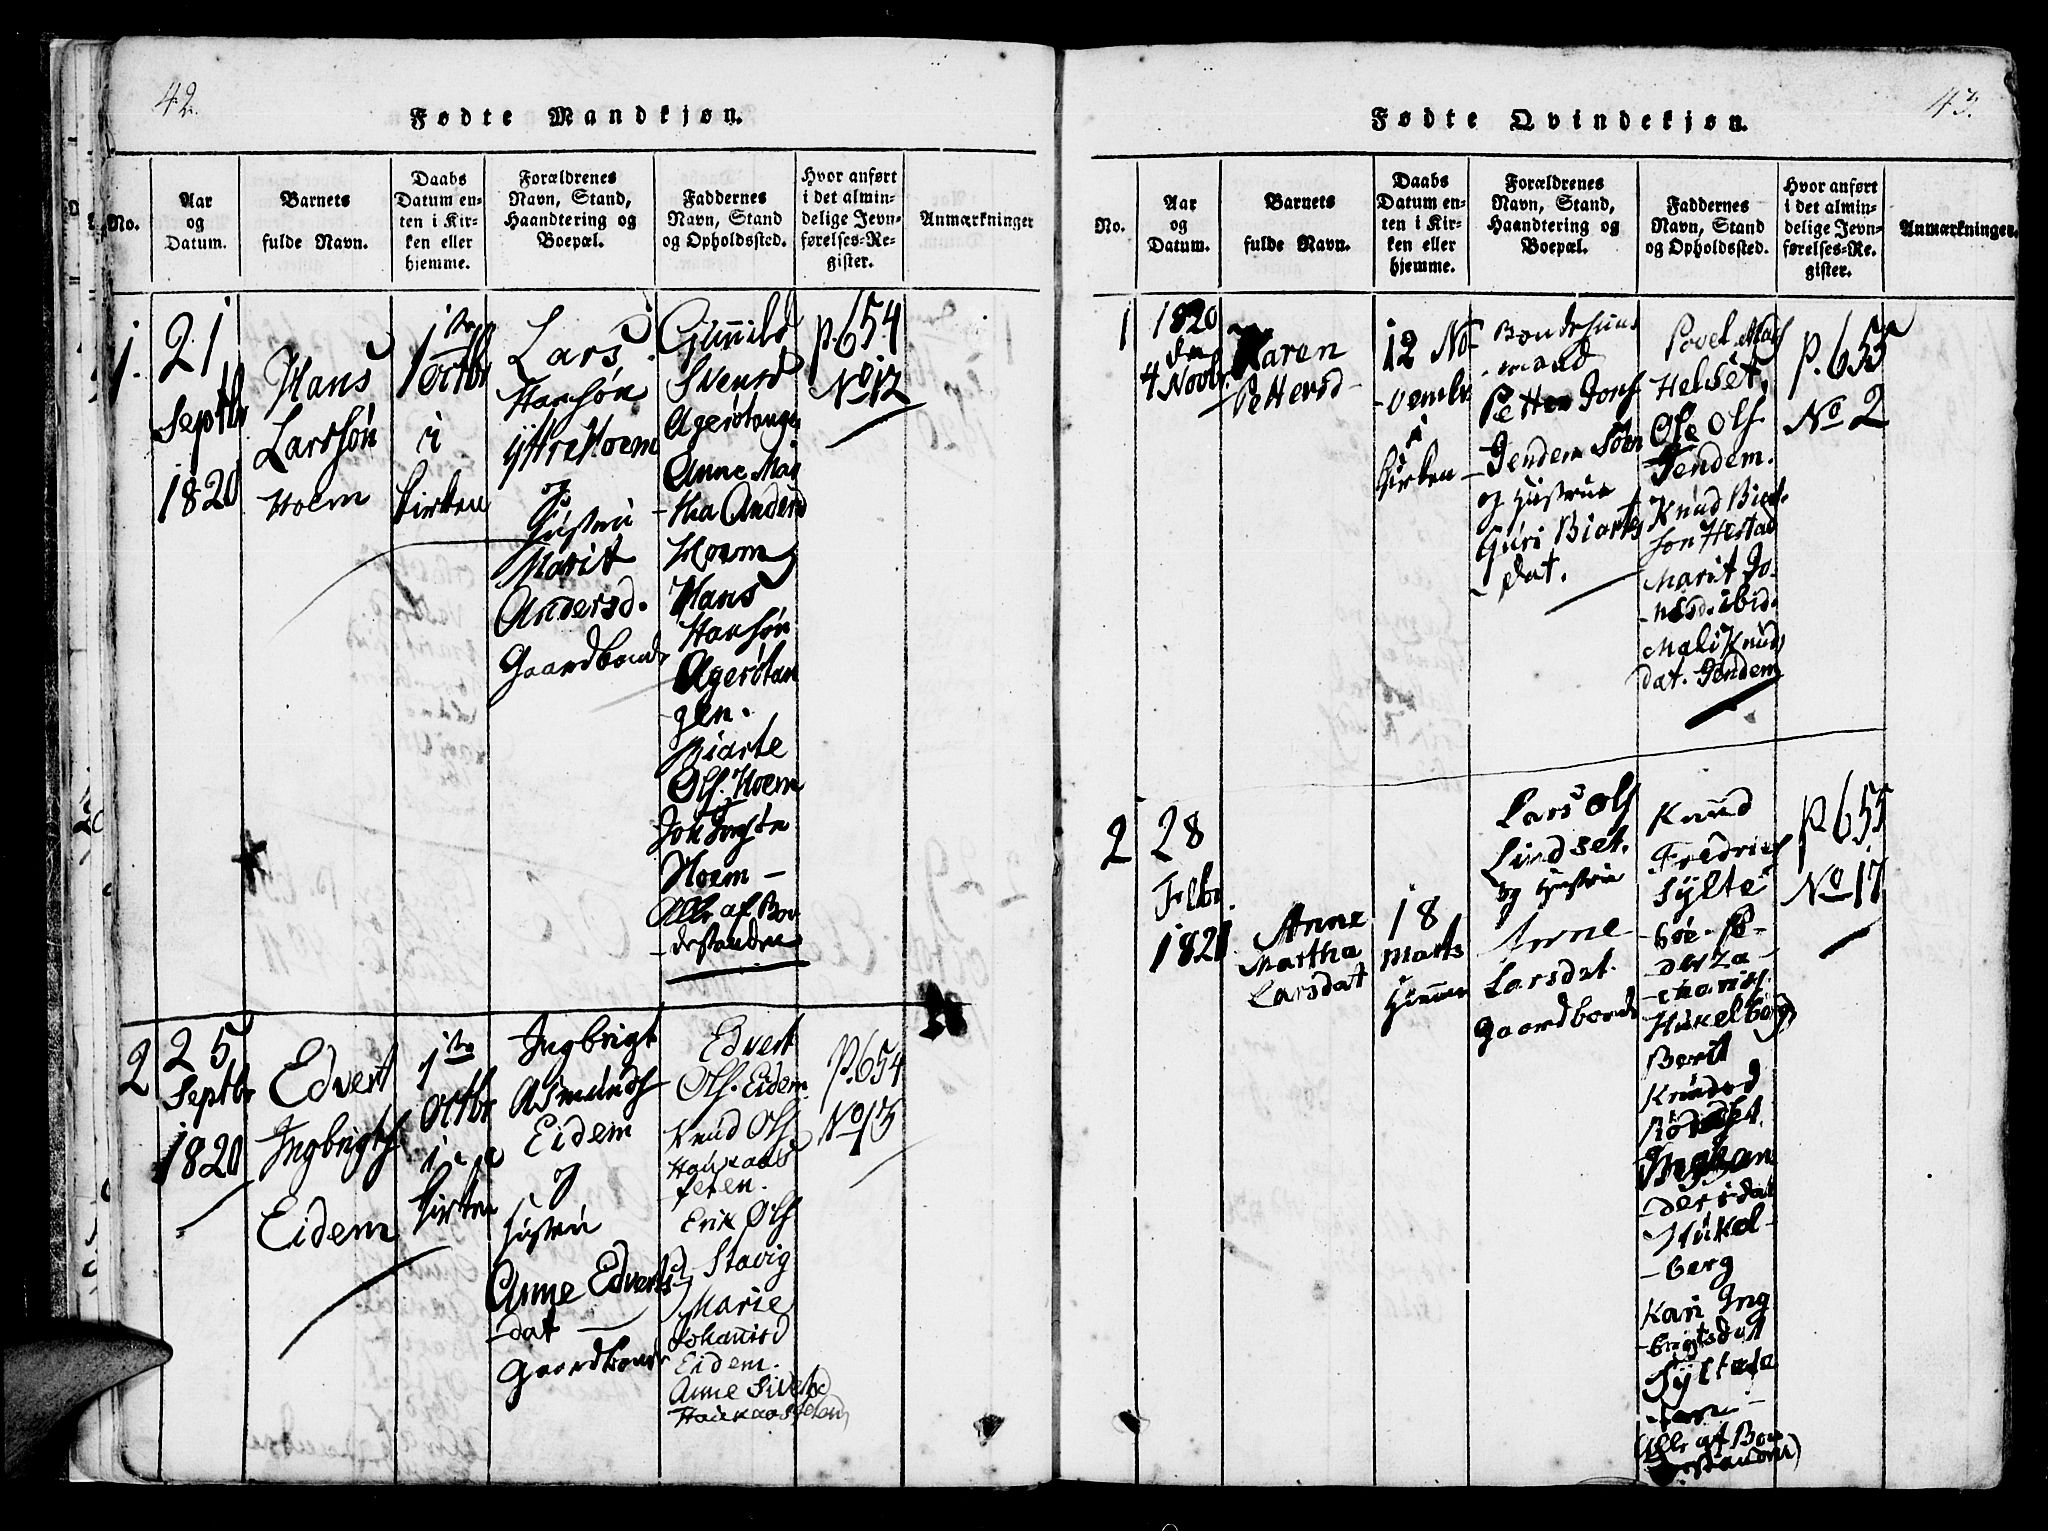 42.
Fødte Mandkjøn.
No.
Aar
og
Datum.
Barnets
fulde Navn.
Daabs
Datum en-
ten i Kir-
ken eller
hjemme.
Forældrenes
Navn, Stand,
Haandtering og
Boepæl.
Faddernes
Navn, Stand
og Opholdssted.
Hvor anført
i det almin-
delige Jevn-
førelses-Re-
gister.
Anmærkninger
1.
21
Septbr
1820
Hans
Larssøn
Hoem
1ste
octbr
i
kirken
Lars
Hansøn
yttreHoem
og
Hustru
Marit
Andersd.
Gaardbond
Gunnild
Svensd
Agerøtangen
Anne Mar
tha Andersd
Hoem
Hans
Hansøn
Agerøtan
gen.
Biarte
Ols. Hoem
Hoem —
Alle af Bon
destanden
P.654
No 12
2
25
Septbr
1820
Edvert
Ingbrigts
Eidem
1ste
Octbr
i
kirken
Ingbrigt
Asmunds
Eidem
og
Hustru
Anne Edverts
-dat
Gaardbond
Edvert
Ols. Eidem
Knud Ols
Haukaas
feten.
Erik Ols
Stavig
Marie
Johannsd
Eidem.
Anne Sivertsd
Haukaasfeten
P.654
No 13
43.
Fødte Qvindekjøn.
No.
Aar
og
Datum.
Barnets
fulde Navn.
Daabs
Datum en-
ten i Kir-
ken eller
hjemme.
Forældrenes
Navn, Stand,
Haandtering og
Boepæl.
Faddernes
Navn, Stand
og Opholdssted.
Hvor anført
i det almin-
delige Jevn-
førelses-Re-
gister.
Anmærkninger.
1
1820
den
4 Novbr.
Karen
Pettersd
12 No-
-vembr
i
kirken
Bondehuus
mand
Petter Jons
Jendem
og Hustrue
Guri Biarts
dat.
Povel
Helset,
Ole Ols
Jendem.
Knud
Marit Jo-
-nsd. ibid.
Mali Knuds
dat. Jendem
P.655
No 2
2
28
Febr.
1821
Anne
Martha
Larsdat
18
Marts
Hiemme
Lars Ols
Lindset.
og Hustrue
Anne
Larsdat.
Gaardbond
Knud
Fredrics
Sylte
Pe-
der Za-
-charias
Hukelberg
Berit
Knudsd
dersdat
Hukel-
-berg
Kari Ing
-brigtsdat
Alle af Bon
destanden
P.655
No 17